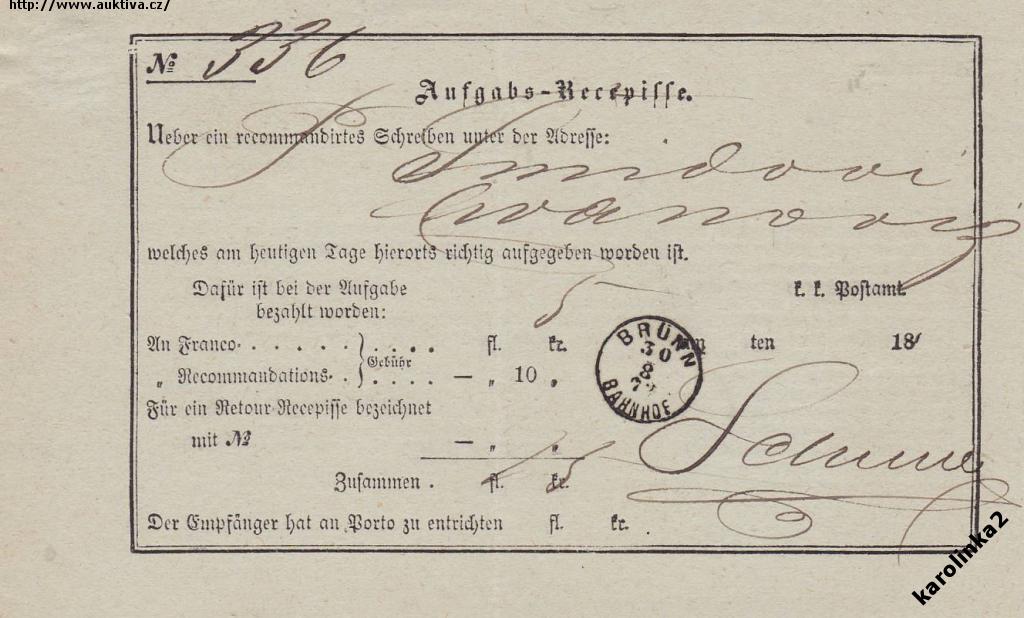 http://www.auktiva.cz/
№ 336
Aufgabs-Recepisse.
Ueber ein recommandirtes Schreiben unter der Adresse:
welches am heutigen Tage hierorts richtig aufgegeben worden ist.
Dafür ist bei der Aufgabe
bezahlt worden:
k. k. Postamt.
5
An Franco. . . . . . . . . . fl. kr.
Gebühr
„ Recommandations. . . . . . — „ 10 „
ten 18
BRÜNN
30
8
BAHNHOF
Für ein Retour-Recepisse bezeichnet
mit № — „ „
Zusammen . fl. 15 kr.
Der Empfänger hat an Porto zu entrichten fl. kr.
karolinka2